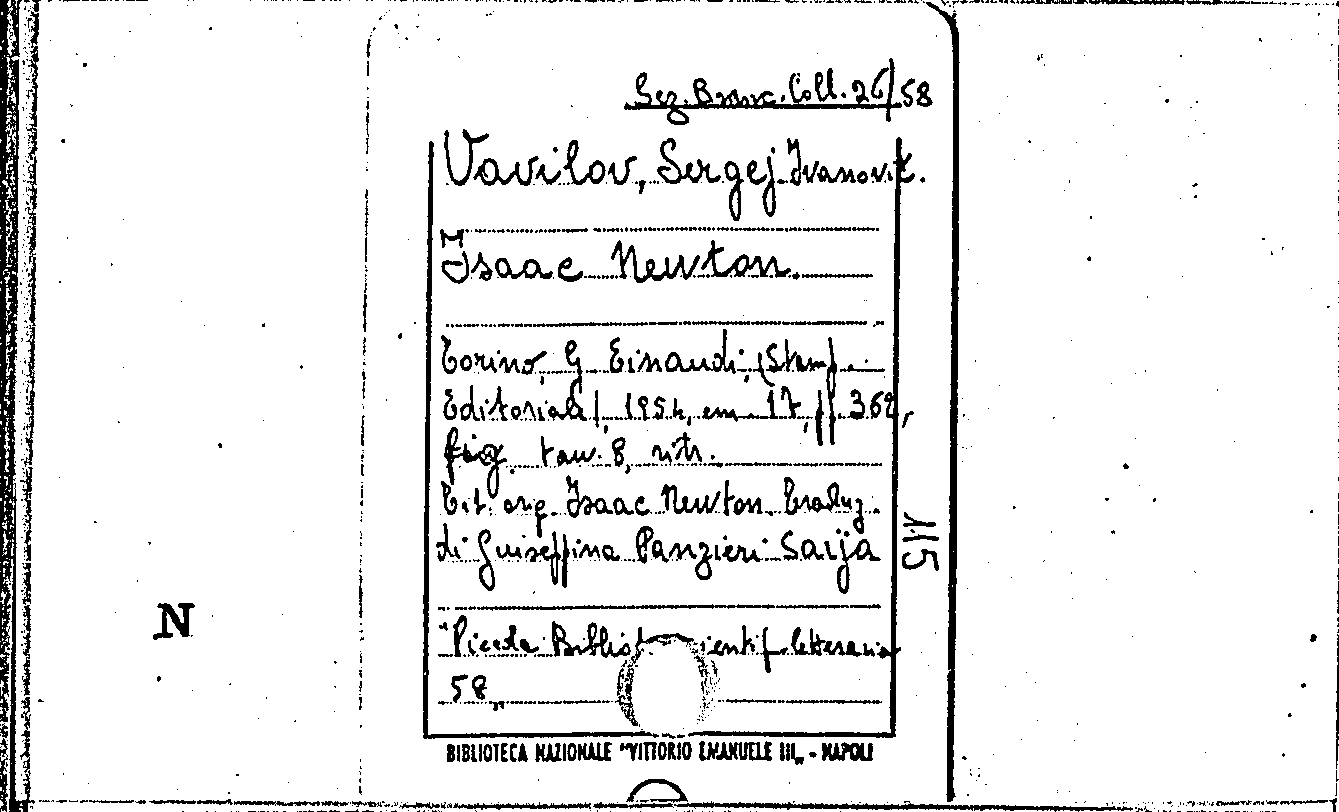 Sez. Branc. Coll. 26/58
Vavilov, Sergej Ivanovič.
Isaac Newton.
Torino, G. Einaudi, (Stamp.
Editoriale), 1954, cm. 17, pp. 369,
fig. tav. 8, ritr.
Tit. orig. Isaac Newton. Traduz.
di Guiseppina Panzieri Saija
115
N
"Piccola Bibliot. scientif. letteraria
58„
BIBLIOTECA NAZIONALE "VITTORIO EMANUELE III„ - NAPOLI